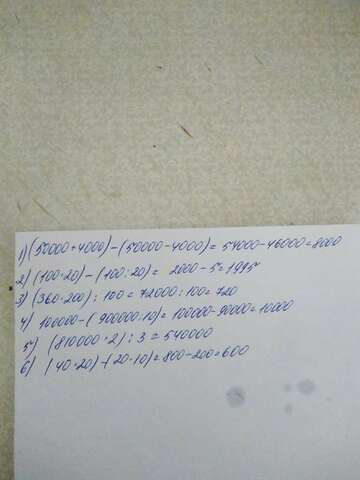 1) (50000+4000)-(50000-4000)=54000-46000=8000
2) (100·20)-(100:20)= 2000-5=1995
3) (360·200):100=72000:100=720
4) 100000-(900000:10)=100000-90000=10000
5) (810000·2):3=540000
6) (40·20)-(20·10)=800-200=600